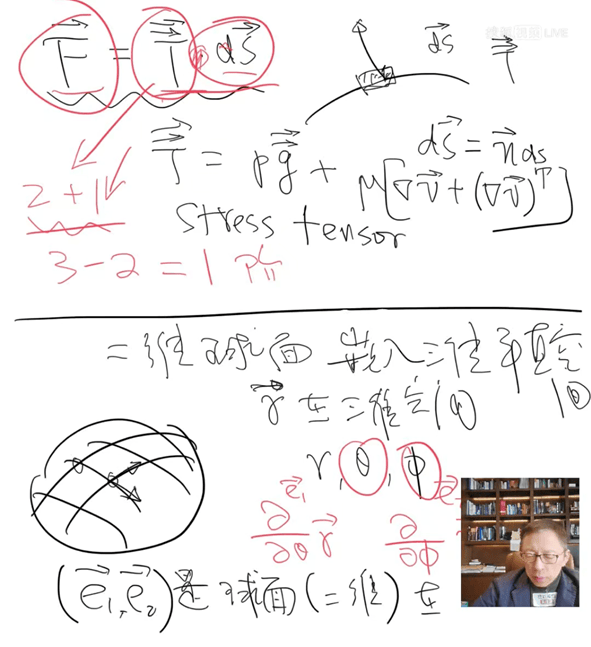 F⃗ = T⃗⃗ · ds⃗
ds⃗ T⃗⃗
LIVE
T⃗⃗ = pg⃗⃗ + μ[∇v⃗ + (∇v⃗)ᵀ]
ds⃗ = n⃗ds
2+1
stress tensor
3-2=1
二维球面 嵌入三维平直空间
r⃗ 在三维空间
r, θ, φ
e⃗₁
∂/∂θ r⃗ ∂/∂φ
(e⃗₁,e⃗₂)是球面(二维)在